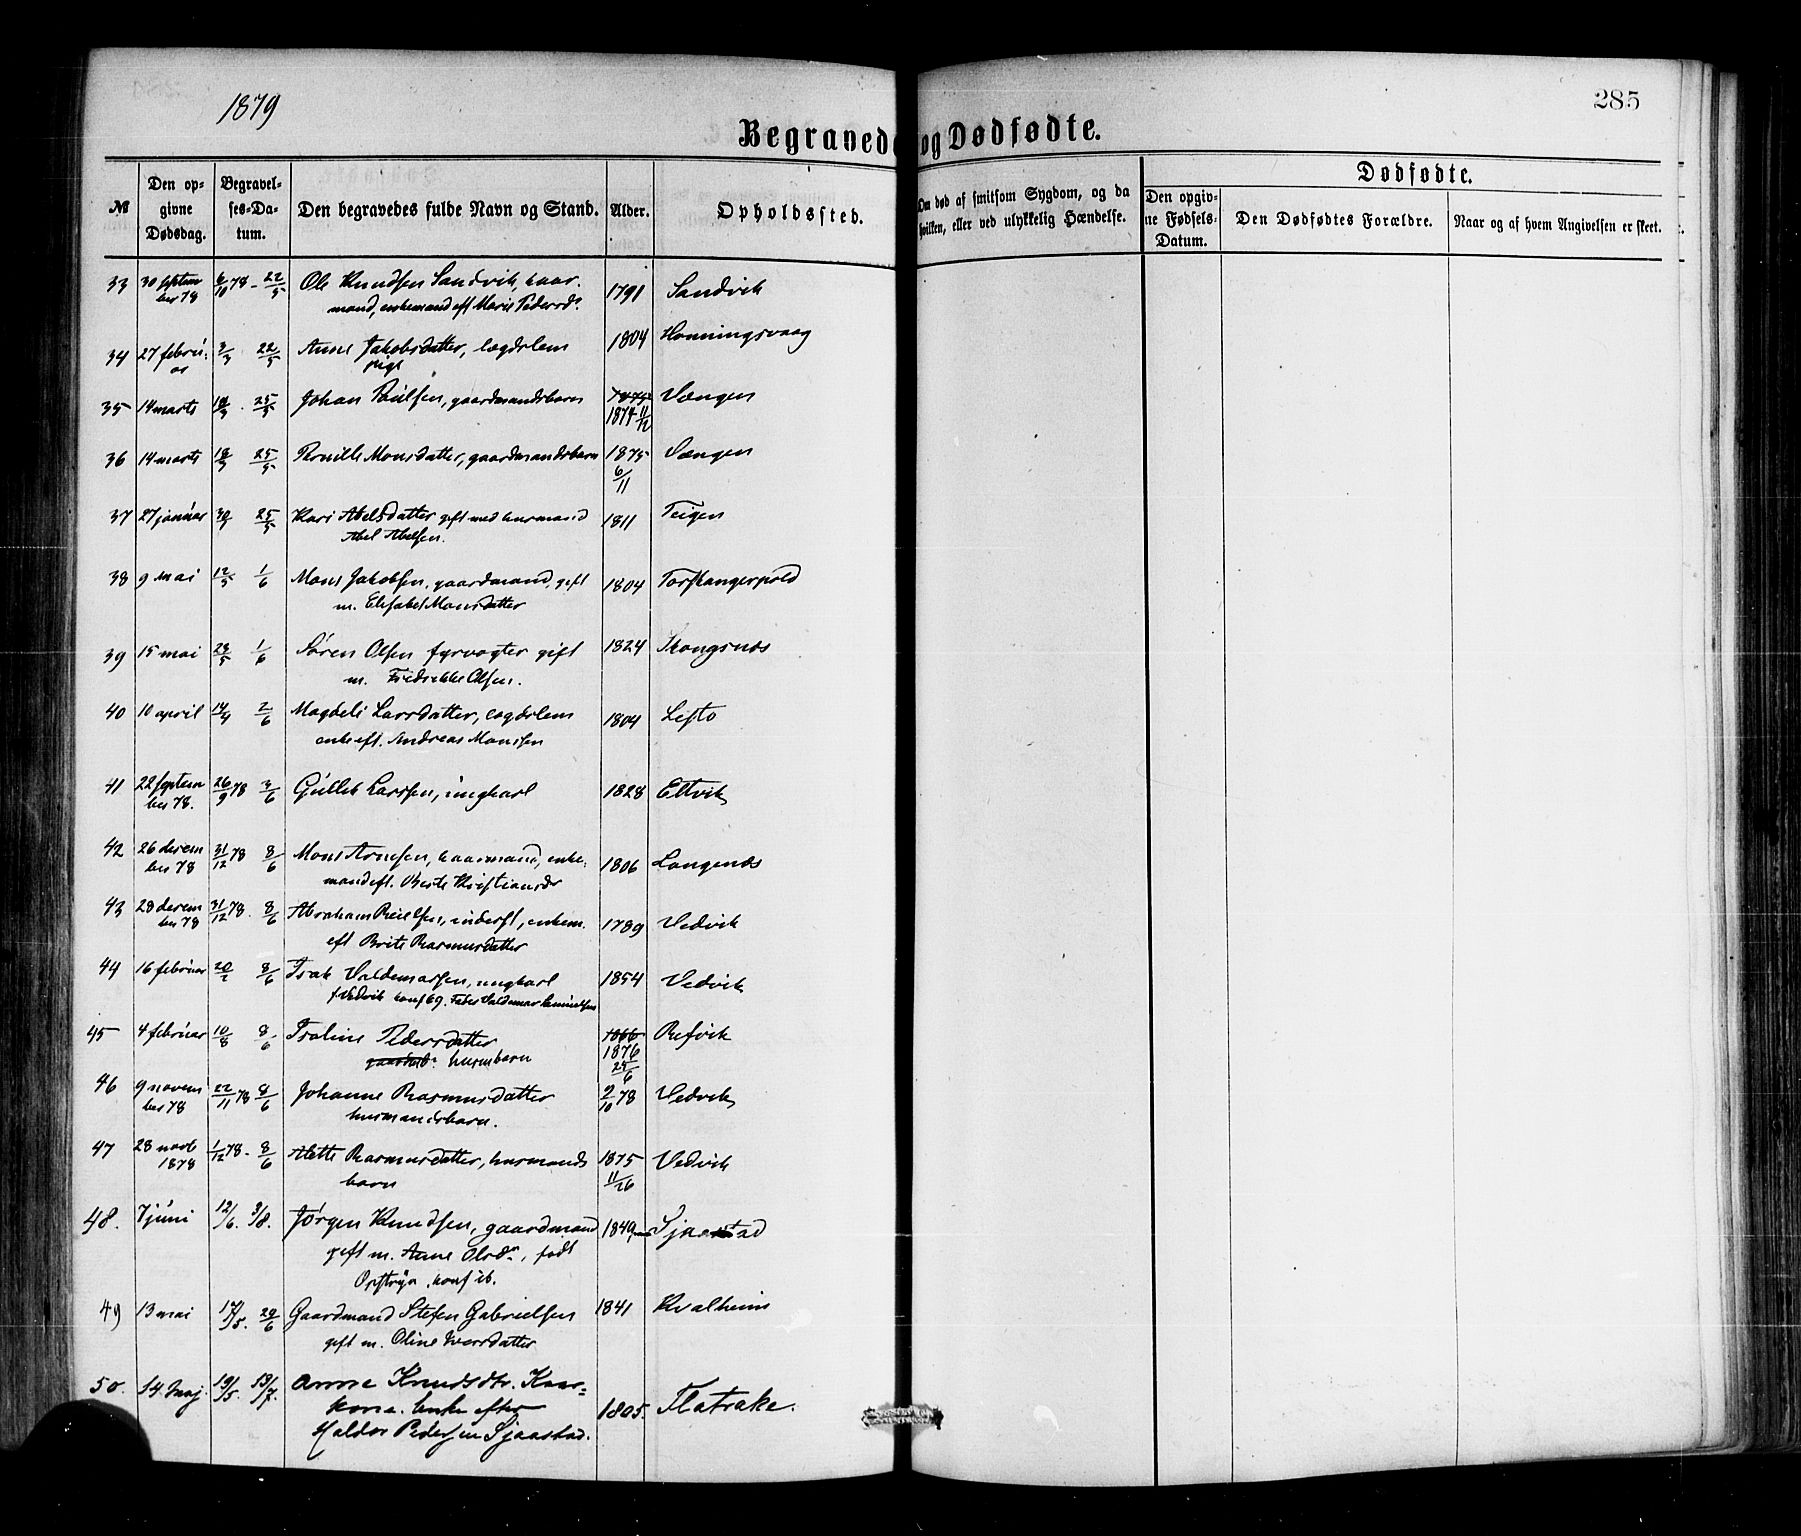 1879
285
Begravede og Dødfødte.
№
Den opgivne Dødsdag.
Begravelses-Datum.
Den begravedes fulde Navn og Stand.
Alder.
Opholdssted.
Om død af smitsom Sygdom, og da hvilken, eller ved ulykkelig Hændelse.
Dødfødte.
Den opgivne Fødsels-Datum.
Den Dødfødtes Forældre.
Naar og af hvem Angivelsen er skeet.
33 30 septem 6/10 78 - 22/5 Ole Knudsen Sandvik, kaar. 1791 Sandvik
ber 78 mand, enkemand eft Marie Pedersd.
34 27 februar 3/3 22/5 Anne Jakobsdatter, lægdslem 1804 Honningsvaag
pige
35 14 marts 18/3 25/5 Johan Paulsen, gaardmandsbarn 1874 11/12 Vængen
36 14 marts 18/3 25/5 Pernille Monsdatter, gaardmandsbarn 1875 Vængen
6/11
37 27 januar 30/1 25/5 Kari Abelsdatter gift med husmand 1811 Teigen
Abel Abelsen.
38 9 mai 12/5 1/6 Mons Jakobsen, gaardmand, gift 1804 Torskangerpold
m. Elisabet Monsdatter
39 15 mai 23/5 1/6 Søren Olsen fyrvogter gift 1824 Skongsnæs
m. Fredrikke Olsen.
40 10 april 14/4 2/6 Magdeli Larsdatter, lægdslem 1804 Lefto
enke eft. Andreas Monsen
41 22 septem 26/9 78 3/6 Gullek Larssen, ungkarl 1828 Eltvik
ber 78.
42 26 decem 31/12 78 8/6 Mons Arnesen, kaarmand, enke- 1806 Langenæs
ber 78 mand eft. Berte Kristiansdr
43 28 decem 31/12 78. 8/6 Abraham Reielsen, inderst, enkem. 1789 Vedvik
ber 78 eft Brite Rasmusdatter
44 16 februar 20/2 8/6 Isak Valdemarsen, ungkarl 1854 Vedvik
f Vedvik konf 69. Fader Valdemar
45 4 februar 10/8 8/6 Isaline Pedersdatter 1866 Refvik
husmbarn 1876
24/6
46 9 novem 22/11 78 8/6 Johanne Rasmusdatter 2/10 78 Vedvik
ber 78 husmandsbarn.
47 28 novb 1/12 78. 8/6 Alette Rasmusdatter, husmands 1875 Vedvik
1878 barn 11/26
48. 7 juni 12/6. 3/8. Jørgen Knudsen, gaardmand 1849 Sjaastad
gift m. Anne Olsdr, født
Opstryn. konf ib.
49 13 mai 17/5. 29/6 Gaardmand Stefen Gabrielsen 1841 Kvalheim
gift m. Oline Iversdatter
50. 14 Maj. 19/5. 13/7. Anne Knudsdtr. Kaar-
kone. Enke efter 1805. Flatrake.
Haldor Pedersen Sjaastad.